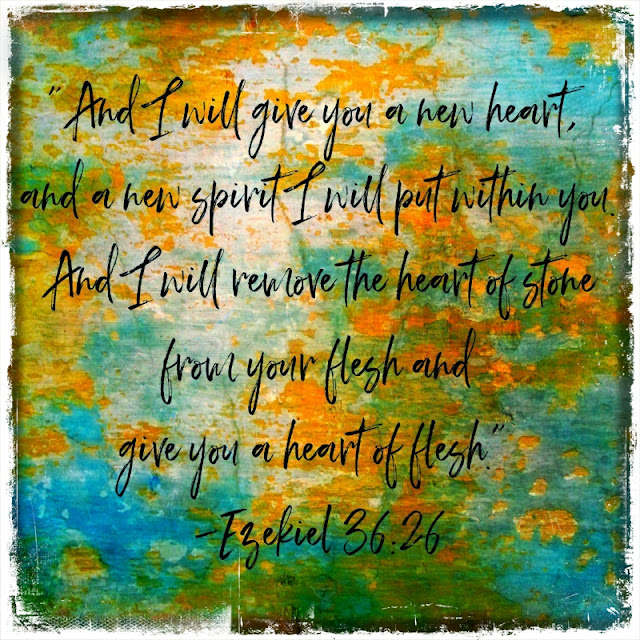 "And I will give you a new heart,
and a new spirit I will put within you.
And I will remove the heart of stone
from your flesh and
give you a heart of flesh."
-Ezekiel 36:26